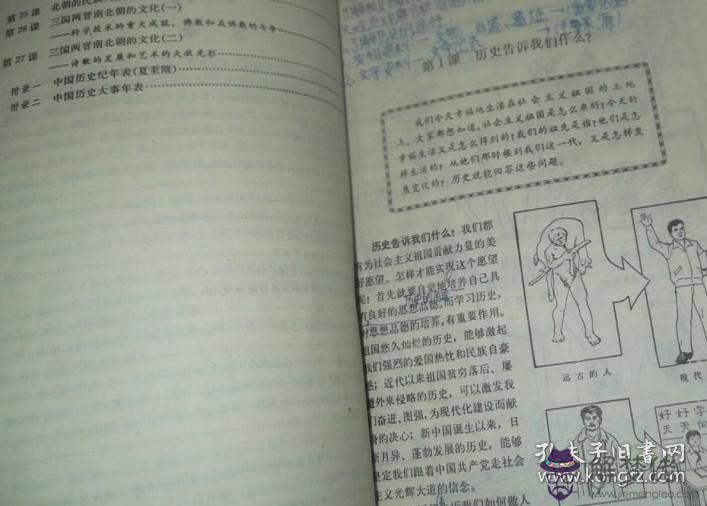 第25课 北朝的民族
第26课 三国两晋南北朝的文化(一)
——科学技术的重大成就、佛教和反佛教的斗争
第27课 三国两晋南北朝的文化(二)
——诗歌的发展和艺术的大放光彩
附录一 中国历史纪年表(夏至隋)
附录二 中国历史大事年表
第1课 历史告诉我们什么?
我们今天幸福地生活在社会主义祖国的土地
上。大家都想知道,社会主义祖国是怎么来的?今天的
幸福生活又是怎么得到的?我们的祖先是谁?他们是怎
样生活的?从他们那时候到我们这一代,又是怎样发
展变化的?历史就能回答这些问题。
历史告诉我们什么?我们都
有为社会主义祖国贡献力量的美
好愿望。怎样才能实现这个愿望
呢?首先就要自觉地培养自己具
有良好的思想品德。而学习历史,
对思想品德的培养,有重要作用。
祖国悠久灿烂的历史,能够激起
我们强烈的爱国热忱和民族自豪
感;近代以来祖国贫穷落后、屡
遭外来侵略的历史,可以激发我
们奋进、图强,为现代化建设而献
身的决心;新中国诞生以来,日
新月异、蓬勃发展的历史,能够
坚定我们跟着中国共产党走社会
主义光辉大道的信念。
诉我们如何做人
远古的人
现代
好好学
天天向
孔夫子旧书网
www.kongfz.com
解梦佬
www.jiemenglao.com